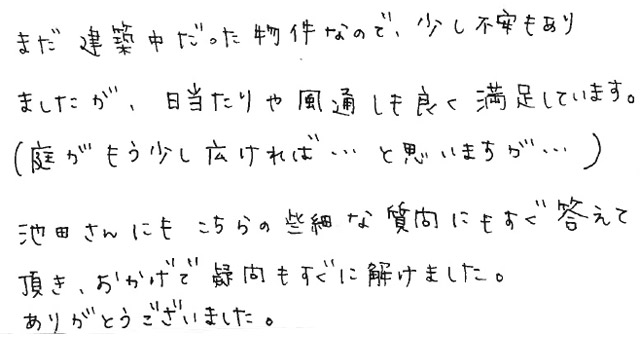 まだ建築中だった物件なので、少し不安もあり
ましたが、日当たりや風通しも良く満足しています。
(庭がもう少し広ければ…と思いますが…)
池田さんにもこちらの些細な質問にもすぐ答えて
頂き、おかげで疑問もすぐに解けました。
ありがとうございました。